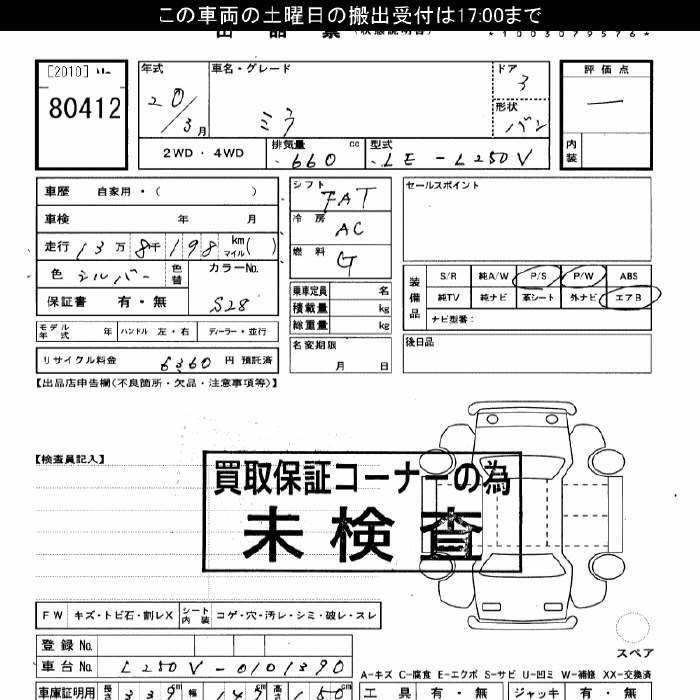 この車両の土曜日の搬出受付は17:00まで
*1003079576*
[2010]
80412
年式 車名・グレード ドア 評価点
20/3月 ミラ 3 —
形状 バン
内装
2WD・4WD 排気量 660 cc 型式 LE-L250V
車歴 自家用・( )
車検 年 月
走行 13万8千198 km マイル( )
色 シルバー 色替 カラーNo. S28
保証書 有・無
モデル年式 年 ハンドル 左・右 ディーラー・並行
リサイクル料金 6360 円 預託済
シフト FAT
冷房 AC
燃料 G
乗車定員 名
積載量 kg
総重量 kg
名変期限 月 日
セールスポイント
装備品 S/R 純A/W P/S P/W ABS
純TV 純ナビ 革シート 外ナビ エアB
ナビ型番:
後日品
【出品店申告欄(不良箇所・欠品・注意事項等)】
【検査員記入】
買取保証コーナーの為
未検査
FW キズ・トビ石・割レX シート内装 コゲ・穴・汚レ・シミ・破レ・スレ
登録No.
車台No. L250V-0101390
スペア
A-キズ C-腐食 E-エクボ S-サビ U-凹ミ W-補修 XX-交換済
車庫証明用 長さ 339cm 幅 147cm 高さ 150
工具 有・無 ジャッキ 有・無